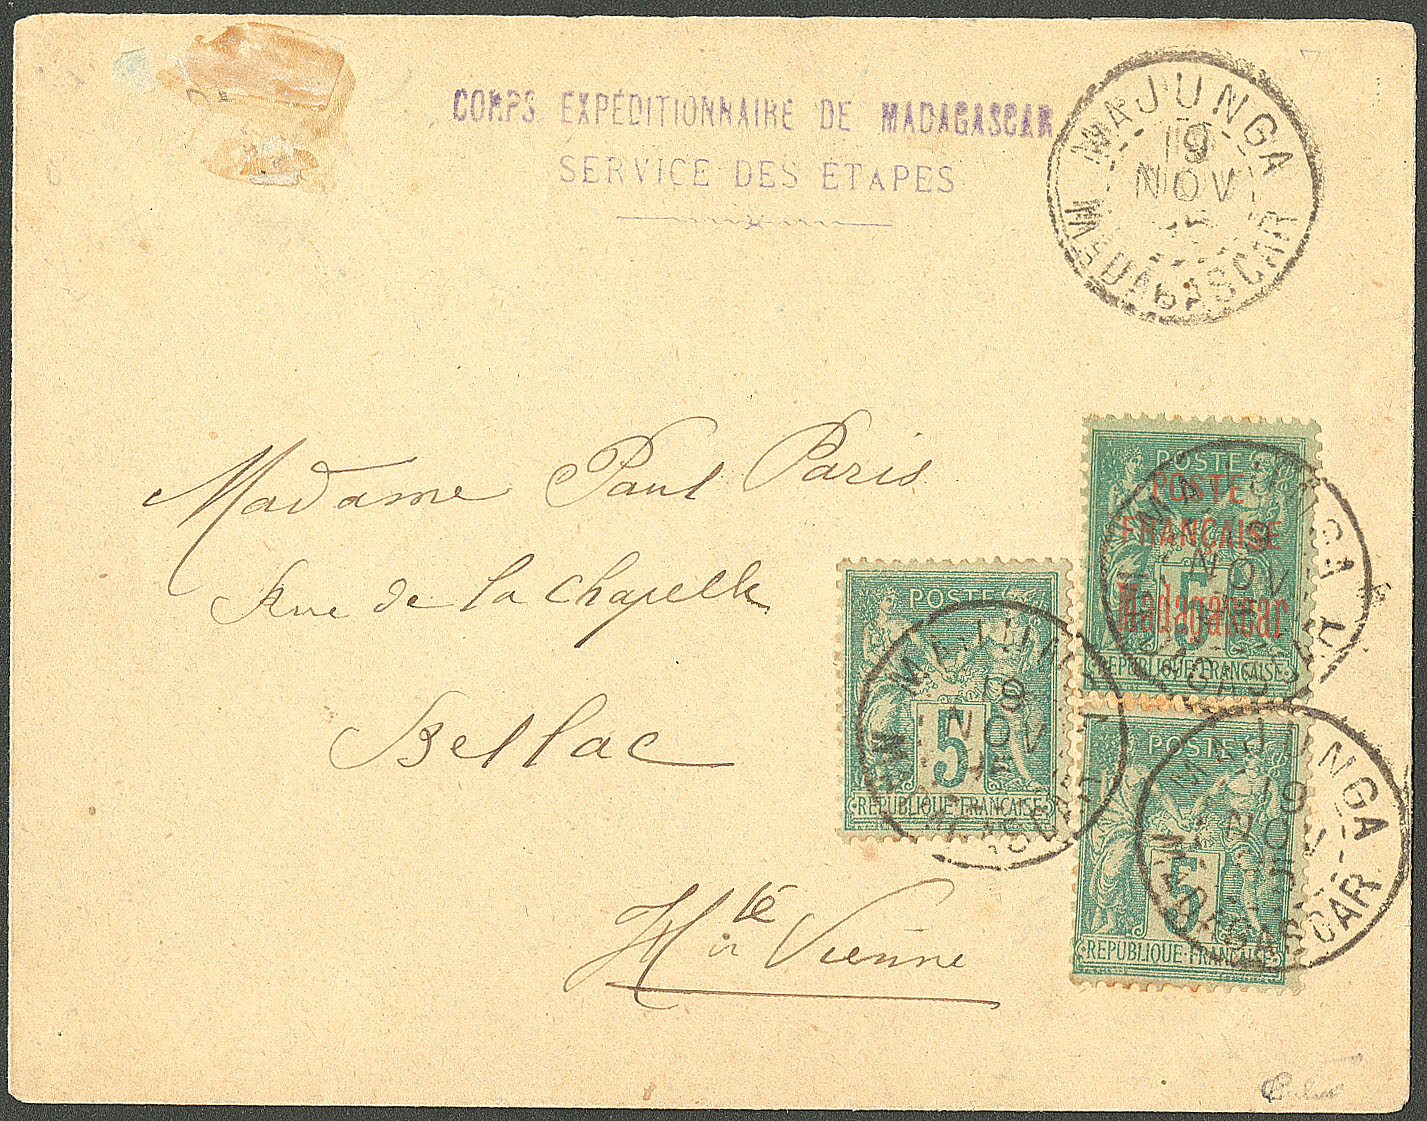 CORPS EXPÉDITIONNAIRE DE MADAGASCAR
SERVICE DES ÉTAPES
MAJUNGA
19
NOV
MADAGASCAR
Madame Paul Paris
Rue de la Chapelle
Bellac
Hte Vienne
POSTE
POSTE
FRANÇAISE
Madagascar
5
REPUBLIQUE FRANÇAISE
MAJUNGA
NOV
95
POSTE
5
REPUBLIQUE FRANÇAISE
MAJUN
19
NOV
MADAGASCAR
POSTE
5
REPUBLIQUE FRANÇAISE
MAJUNGA
19
NOV
95
MADAGASCAR